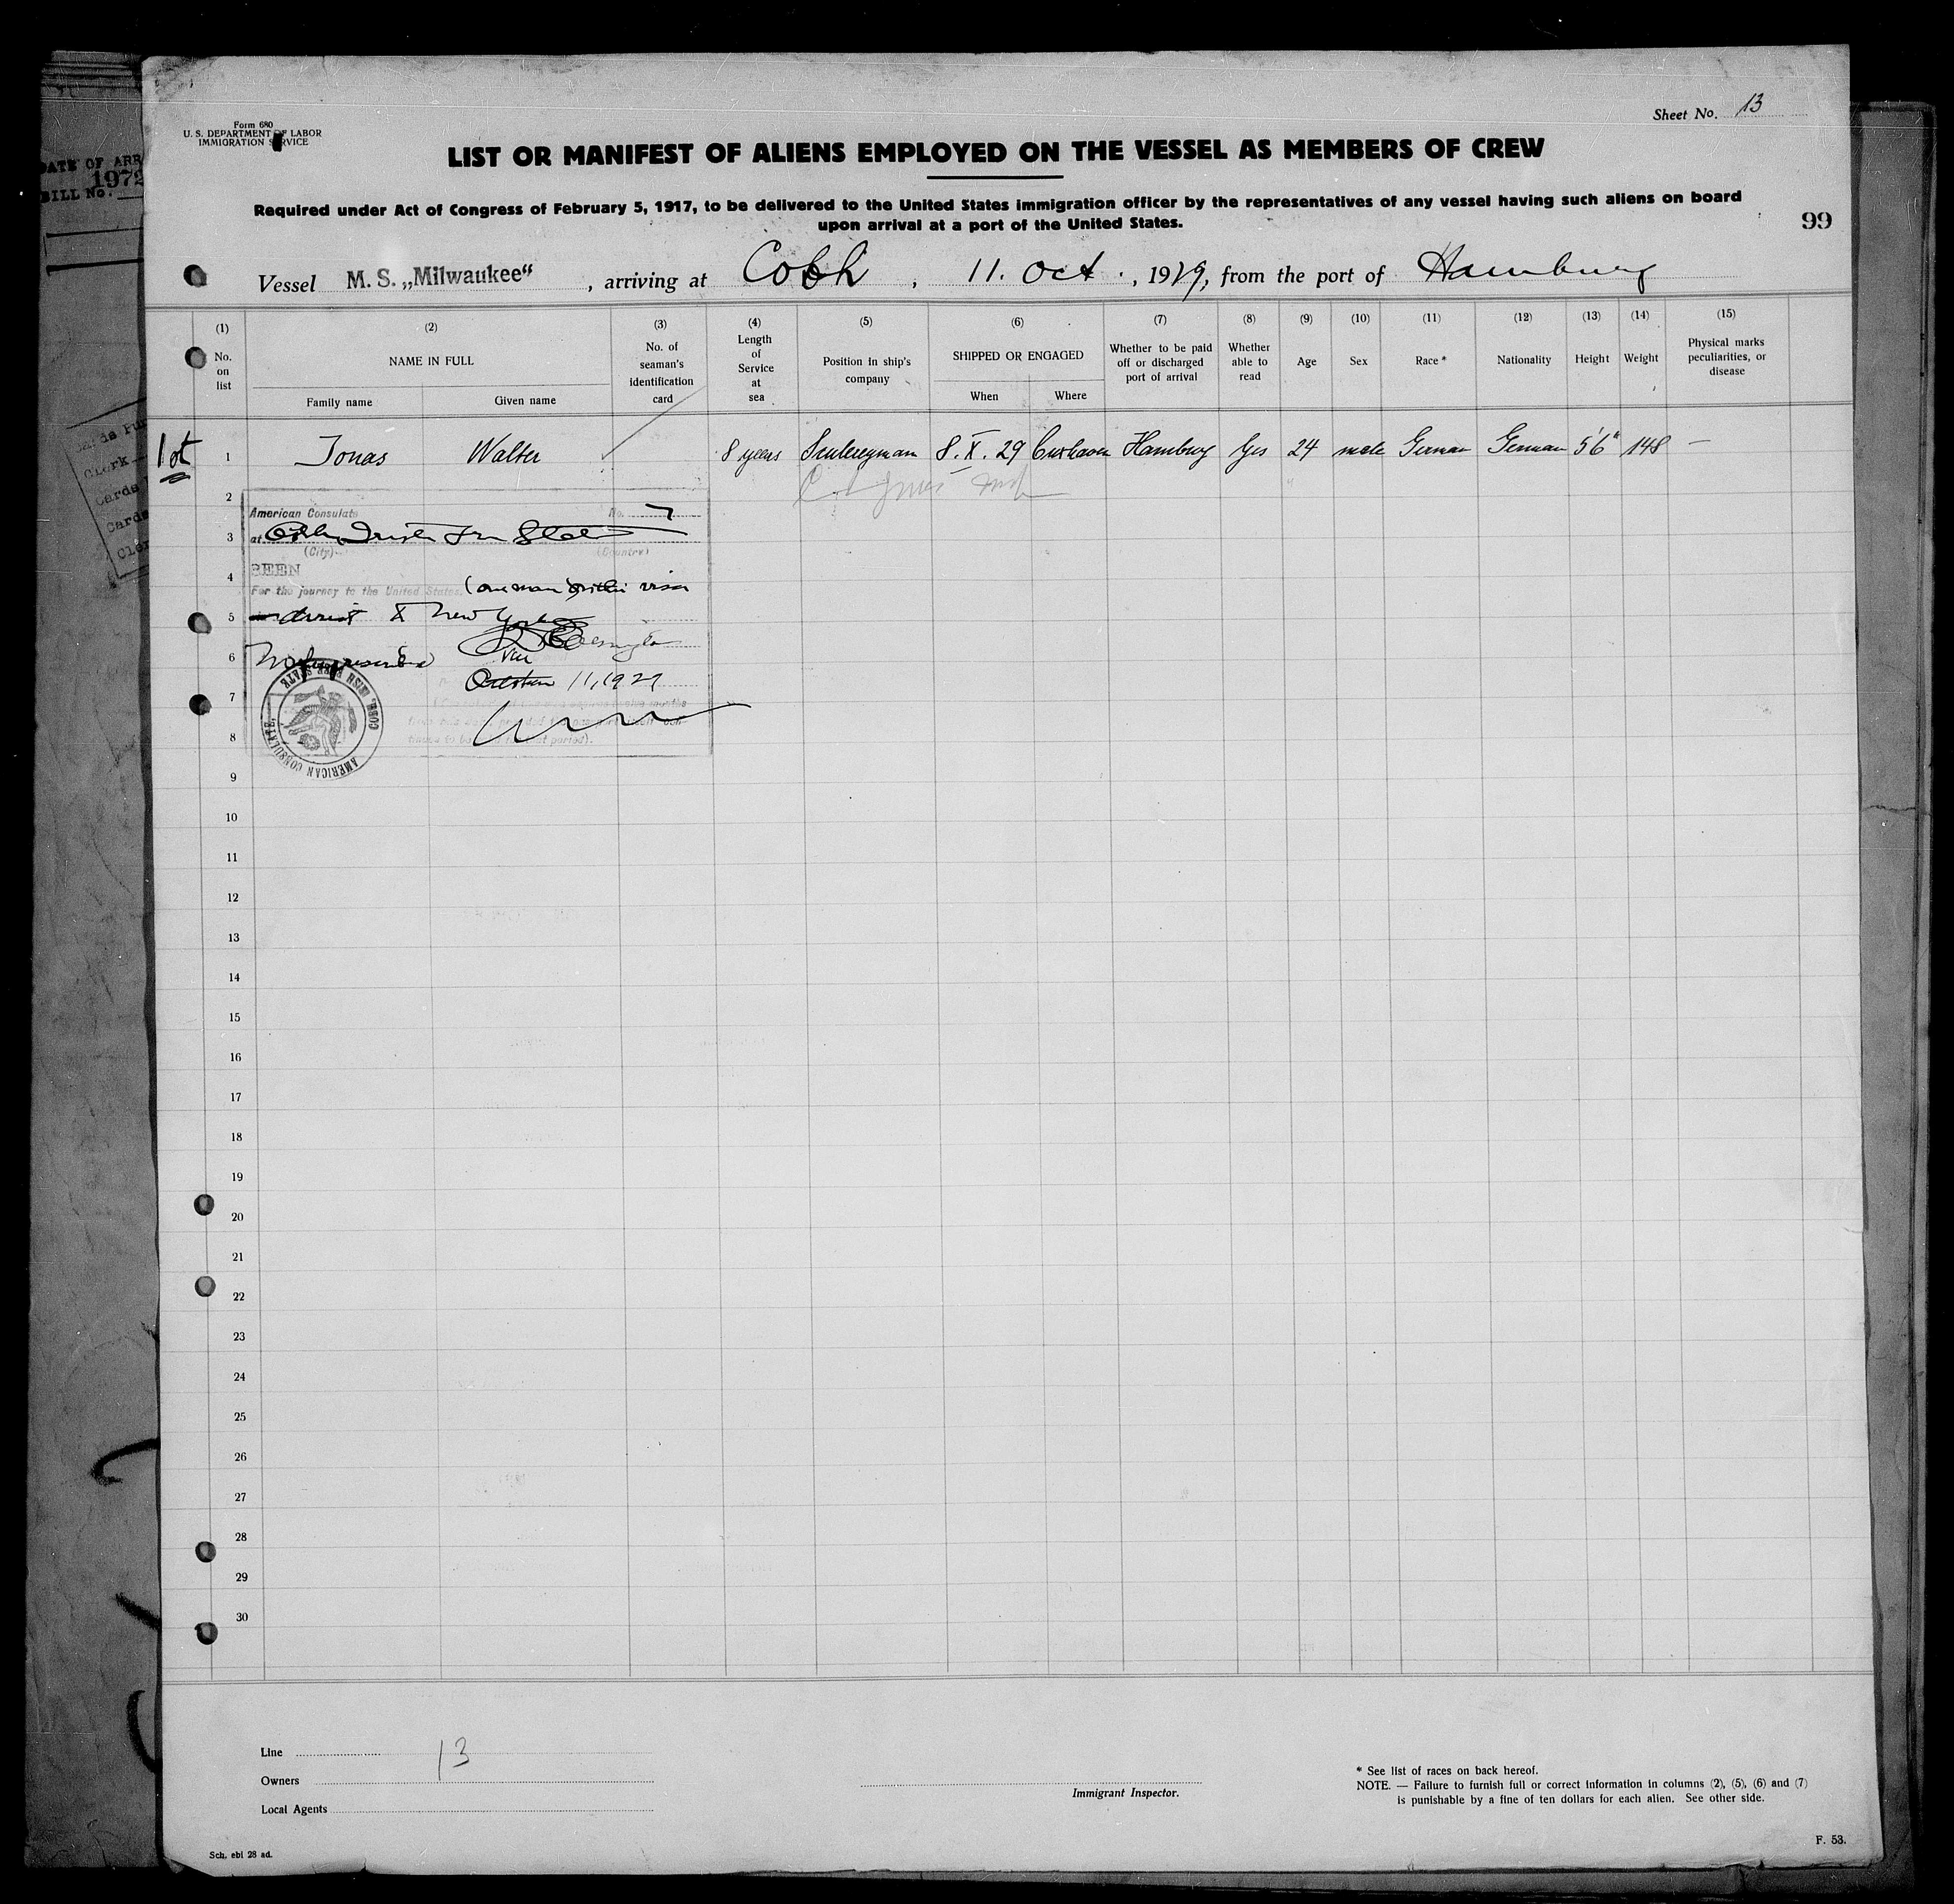 Form 680
U. S. DEPARTMENT OF LABOR
IMMIGRATION SERVICE
Sheet No. 13
LIST OR MANIFEST OF ALIENS EMPLOYED ON THE VESSEL AS MEMBERS OF CREW
Required under Act of Congress of February 5, 1917, to be delivered to the United States immigration officer by the representatives of any vessel having such aliens on board
upon arrival at a port of the United States.
99
DATE OF ARR
1972
BILL No.
Vessel M. S. „Milwaukee“ , arriving at Cobh , 11. Oct. , 1929, from the port of Hamburg
(1) (2) (3) (4) (5) (6) (7) (8) (9) (10) (11) (12) (13) (14) (15)
No. on list
NAME IN FULL
Family name Given name
No. of seaman's identification card
Length of Service at sea
Position in ship's company
SHIPPED OR ENGAGED
When Where
Whether to be paid off or discharged port of arrival
Whether able to read
Age
Sex
Race *
Nationality
Height
Weight
Physical marks peculiarities, or disease
1st 1 Jonas Walter 8 years Sculleryman 8. X. 29 Cuxhaven Hamburg Yes 24 male German German 5'6" 148 —
2
American Consulate No. 7
3 at Cobh, Irish Free State
(City) (Country)
SEEN
4
For the journey to the United States. visa
5 New York
6 No fee prescribed
Vice
October 11, 1929
7
8
AMERICAN CONSULATE, COBH, IRISH FREE STATE
9
10
11
12
13
14
15
16
17
18
19
20
21
22
23
24
25
26
27
28
29
30
Line 13
Owners
Local Agents
Immigrant Inspector.
* See list of races on back hereof.
NOTE. — Failure to furnish full or correct information in columns (2), (5), (6) and (7)
is punishable by a fine of ten dollars for each alien. See other side.
Sch. ebl 28 ad.
F. 53.